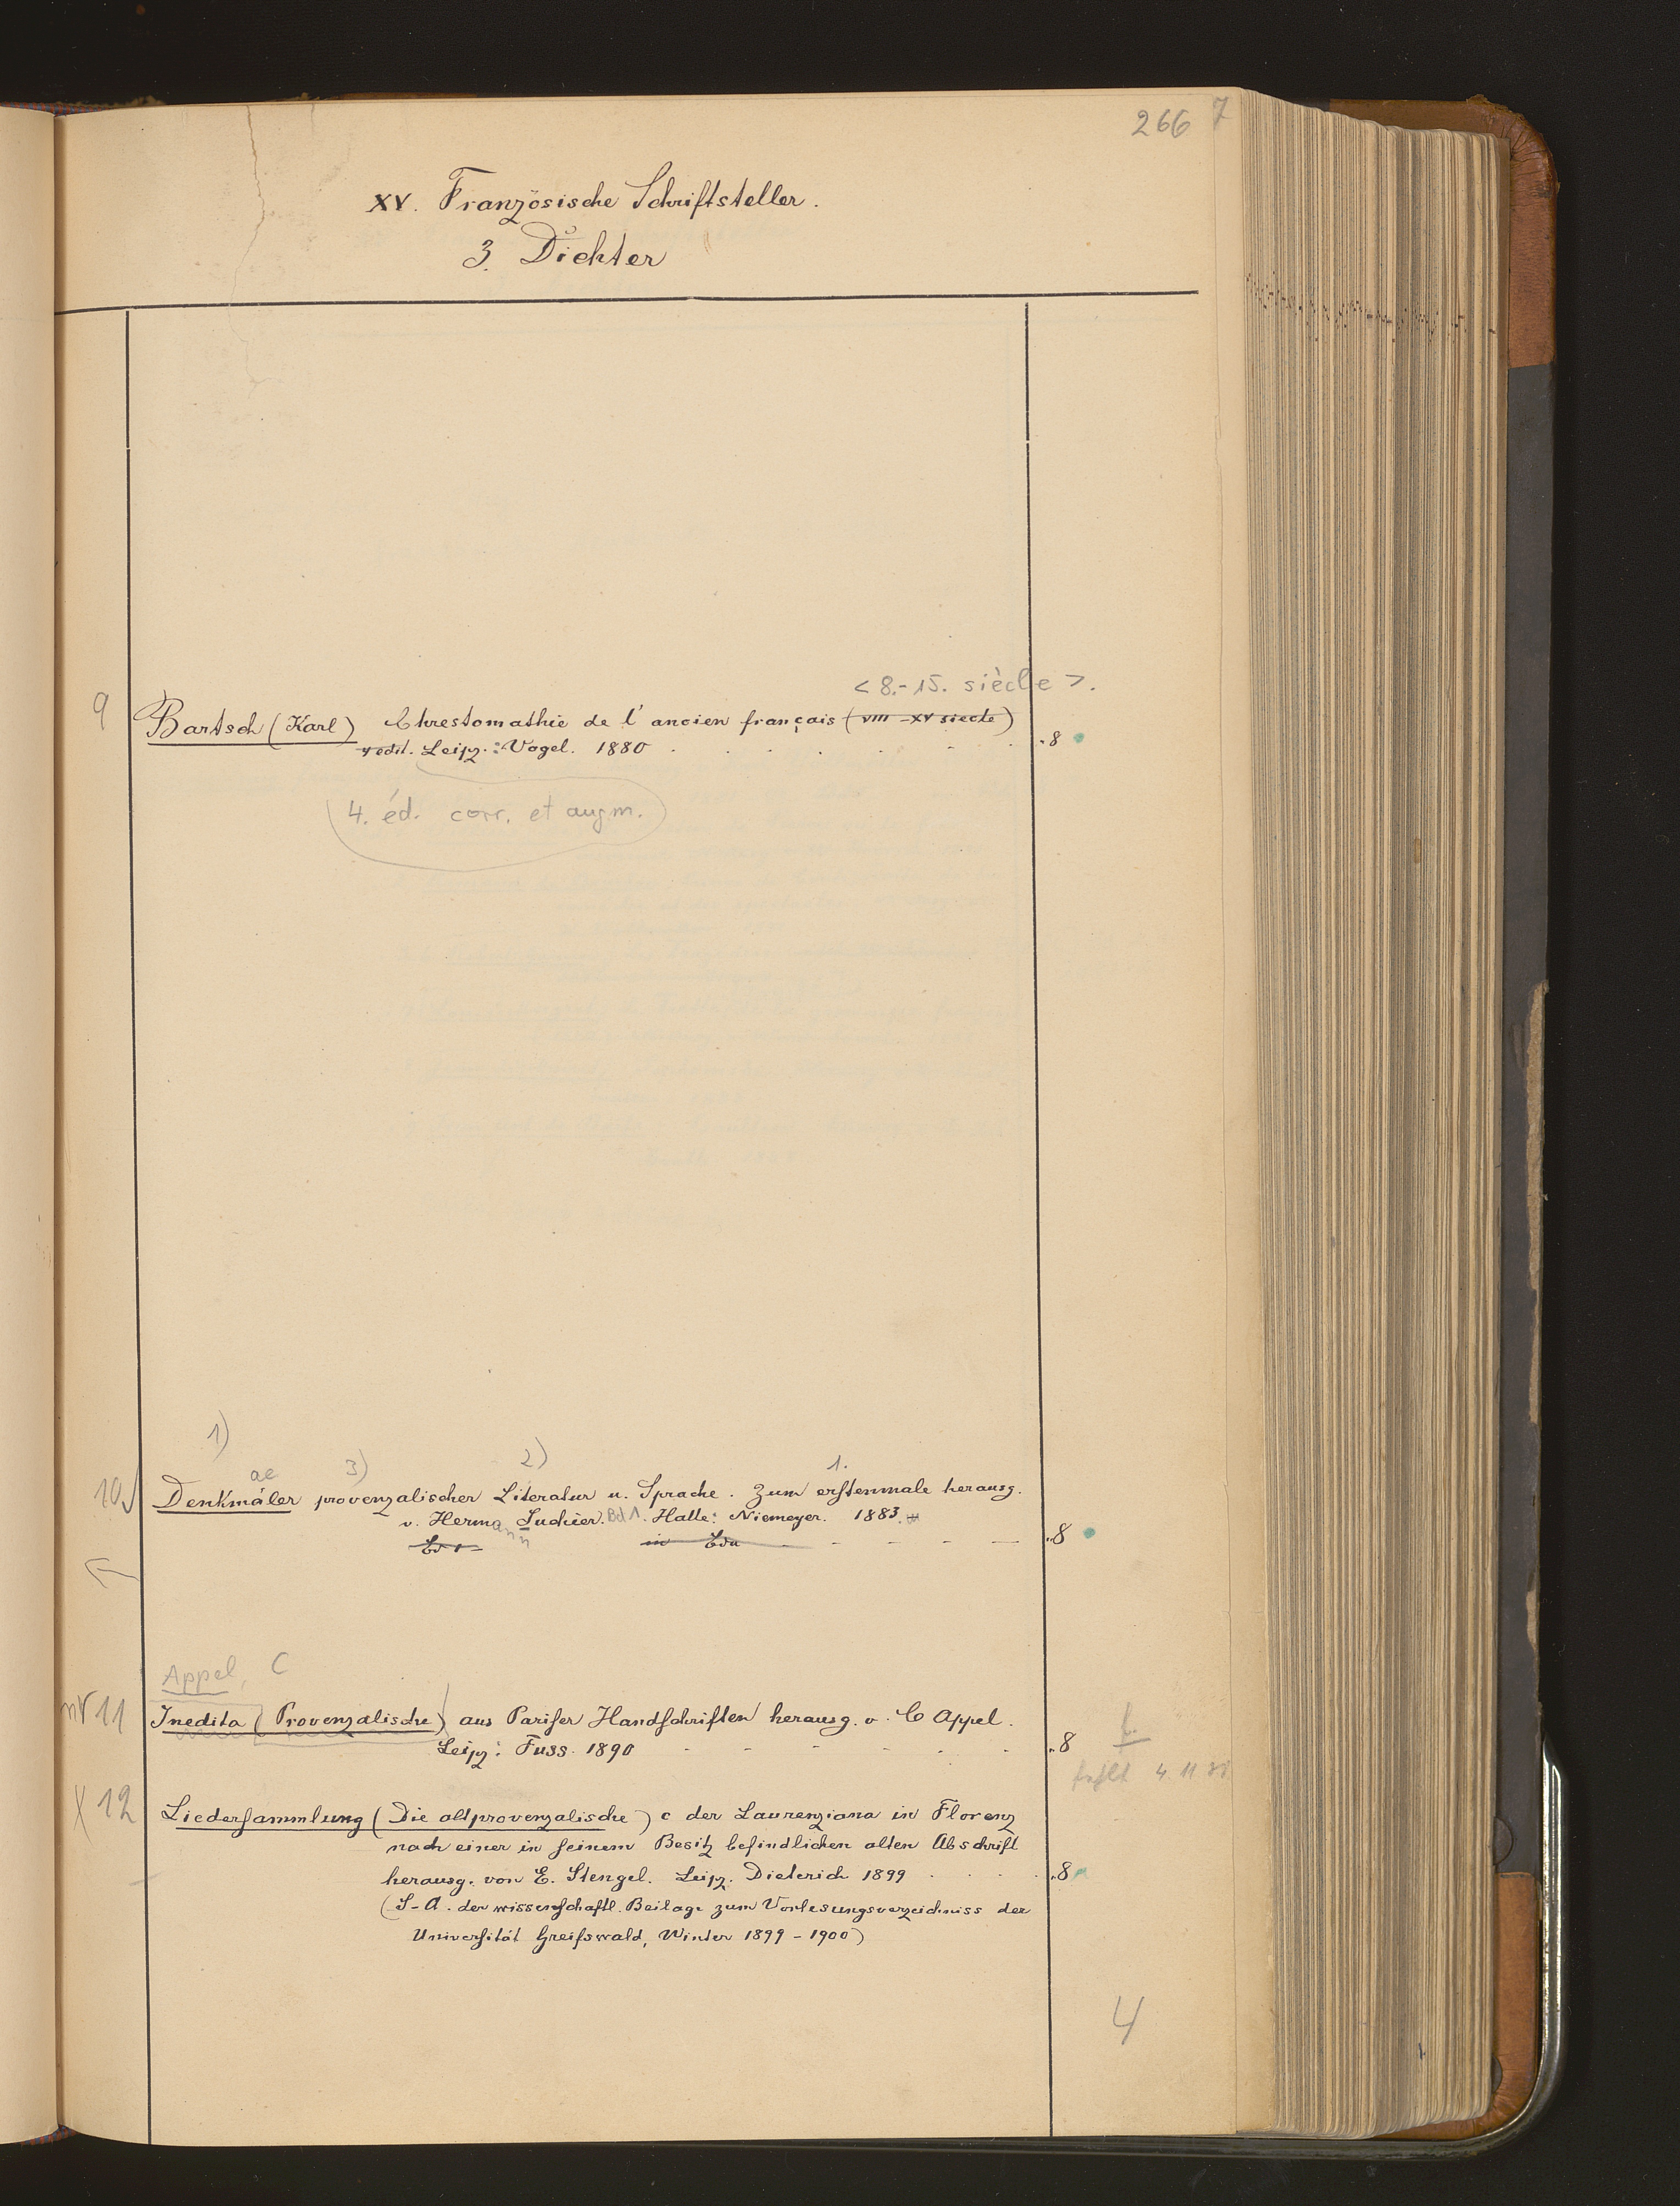 266 7
XV. Französische Schriftsteller.
3. Dichter
<8.-15. siècle>.
9 Bartsch (Karl) Chrestomathie de l'ancien français (VIII-XV siecle)
4 edit. Leipz.: Vogel. 1880 . . . . . . . 8
4. éd. corr. et augm.
1)
ae 3) 2) 1.
10 Denkmäler provenzalischer Literatur u. Sprache. Zum erstenmale herausg.
v. Hermann Suchier. Bd 1. Halle: Niemeyer. 1883.
in - - - - - 8
Appel, C
nr 11 Inedita (Provenzalische) aus Pariser Handschriften herausg. v. C Appel.
Leipz: Fuss. 1890 - - - - - - 8
fehlt 4. 11
x 12 Liedersammlung (Die altprovenzalische) c der Laurenziana in Florenz
nach einer in seinem Besitz befindlichen alten Abschrift
herausg. von E. Stengel. Leipz. Dieterich 1899 . . . 8
(S-A. der wissenschaftl. Beilage zum Vorlesungsverzeichniss der
Universität Greifswald, Winter 1899-1900)
4